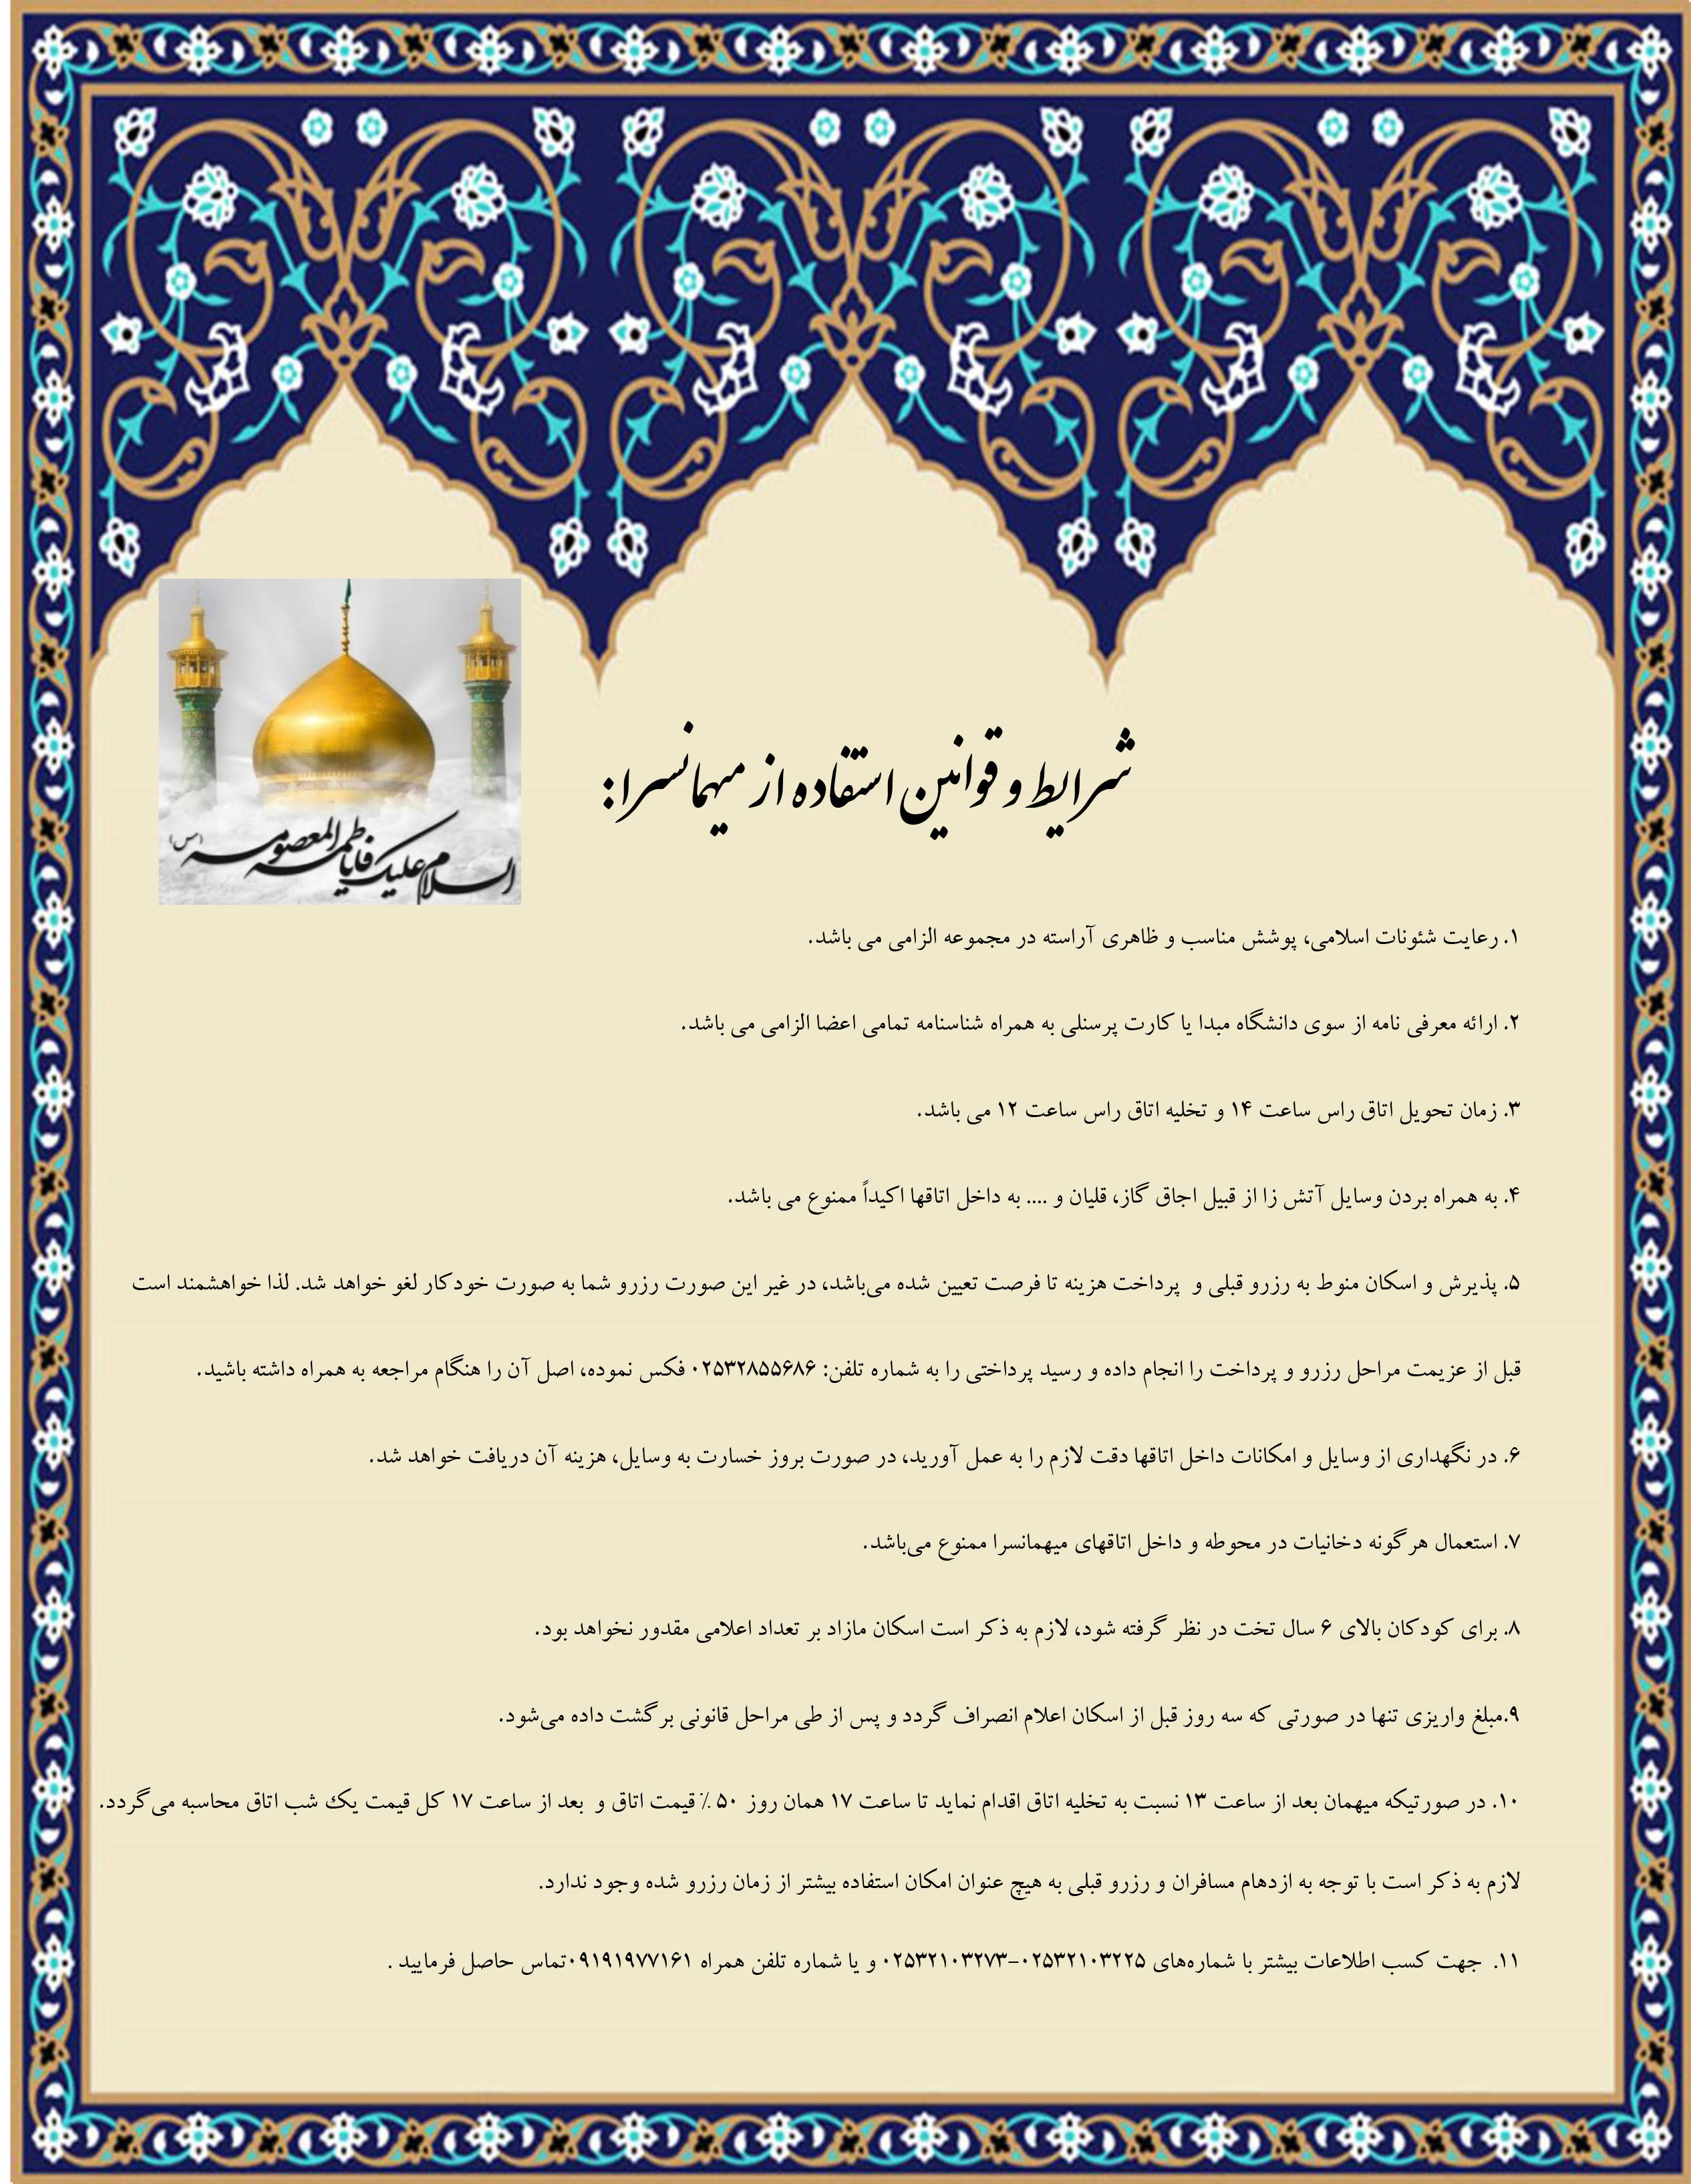 شرایط و قوانین استفاده از میهمانسرا:
السلام علیک یا فاطمه المعصومه (س)
۱. رعایت شئونات اسلامی، پوشش مناسب و ظاهری آراسته در مجموعه الزامی می باشد.
۲. ارائه معرفی نامه از سوی دانشگاه مبدا یا کارت پرسنلی به همراه شناسنامه تمامی اعضا الزامی می باشد.
۳. زمان تحویل اتاق راس ساعت ۱۴ و تخلیه اتاق راس ساعت ۱۲ می باشد.
۴. به همراه بردن وسایل آتش زا از قبیل اجاق گاز، قلیان و .... به داخل اتاقها اکیداً ممنوع می باشد.
۵. پذیرش و اسکان منوط به رزرو قبلی و پرداخت هزینه تا فرصت تعیین شده می‌باشد، در غیر این صورت رزرو شما به صورت خودکار لغو خواهد شد. لذا خواهشمند است
قبل از عزیمت مراحل رزرو و پرداخت را انجام داده و رسید پرداختی را به شماره تلفن: ۰۲۵۳۲۸۵۵۶۸۶ فکس نموده، اصل آن را هنگام مراجعه به همراه داشته باشید.
۶. در نگهداری از وسایل و امکانات داخل اتاقها دقت لازم را به عمل آورید، در صورت بروز خسارت به وسایل، هزینه آن دریافت خواهد شد.
۷. استعمال هر گونه دخانیات در محوطه و داخل اتاقهای میهمانسرا ممنوع می‌باشد.
۸. برای کودکان بالای ۶ سال تخت در نظر گرفته شود، لازم به ذکر است اسکان مازاد بر تعداد اعلامی مقدور نخواهد بود.
۹.مبلغ واریزی تنها در صورتی که سه روز قبل از اسکان اعلام انصراف گردد و پس از طی مراحل قانونی برگشت داده می‌شود.
۱۰. در صورتیکه میهمان بعد از ساعت ۱۳ نسبت به تخلیه اتاق اقدام نماید تا ساعت ۱۷ همان روز ۵۰ ٪ قیمت اتاق و بعد از ساعت ۱۷ کل قیمت یک شب اتاق محاسبه می‌گردد.
لازم به ذکر است با توجه به ازدهام مسافران و رزرو قبلی به هیچ عنوان امکان استفاده بیشتر از زمان رزرو شده وجود ندارد.
۱۱. جهت کسب اطلاعات بیشتر با شماره‌های ۰۲۵۳۲۱۰۳۲۲۵-۰۲۵۳۲۱۰۳۲۷۳ و یا شماره تلفن همراه ۰۹۱۹۱۹۷۷۱۶۱تماس حاصل فرمایید .